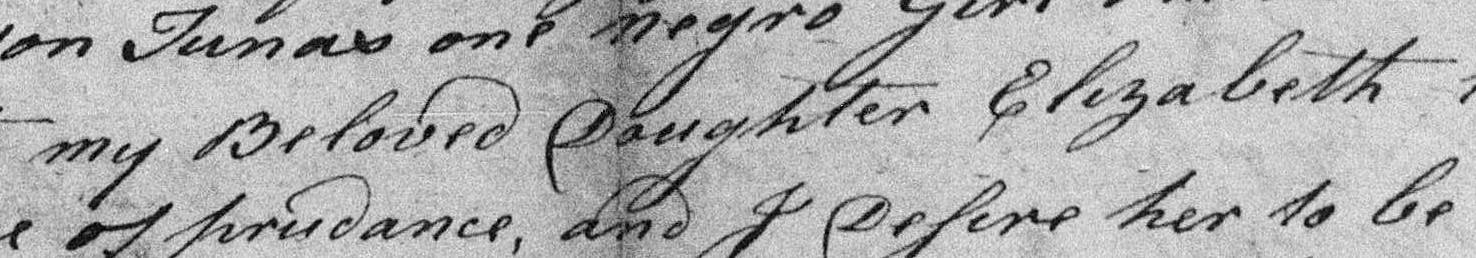 on Tunas one negro Girl
my Beloved Daughter Elizabeth
of prudance, and I Desire her to be